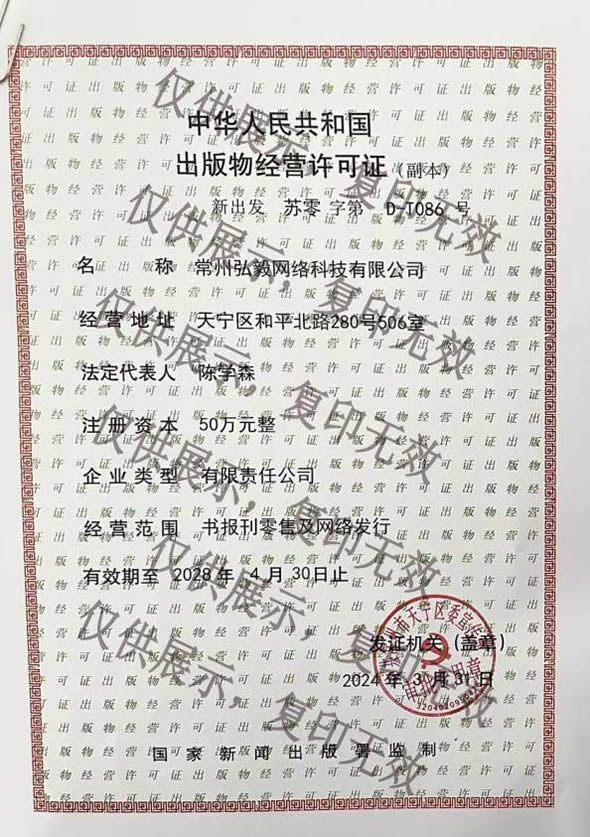 中华人民共和国
出版物经营许可证（副本）
新出发 苏零 字第 D-T086 号
名 称 常州弘毅网络科技有限公司
经营地址 天宁区和平北路280号506室
法定代表人 陈学森
注册资本 50万元整
企业类型 有限责任公司
经营范围 书报刊零售及网络发行
有效期至 2028 年 4 月 30日止
发证机关（盖章）
2024 年 3 月 31 日
国家新闻出版署监制
仅供展示，复印无效
仅供展示，复印无效
仅供展示，复印无效
仅供展示，复印无效
仅供展示，复印无效
仅供展示，复印无效